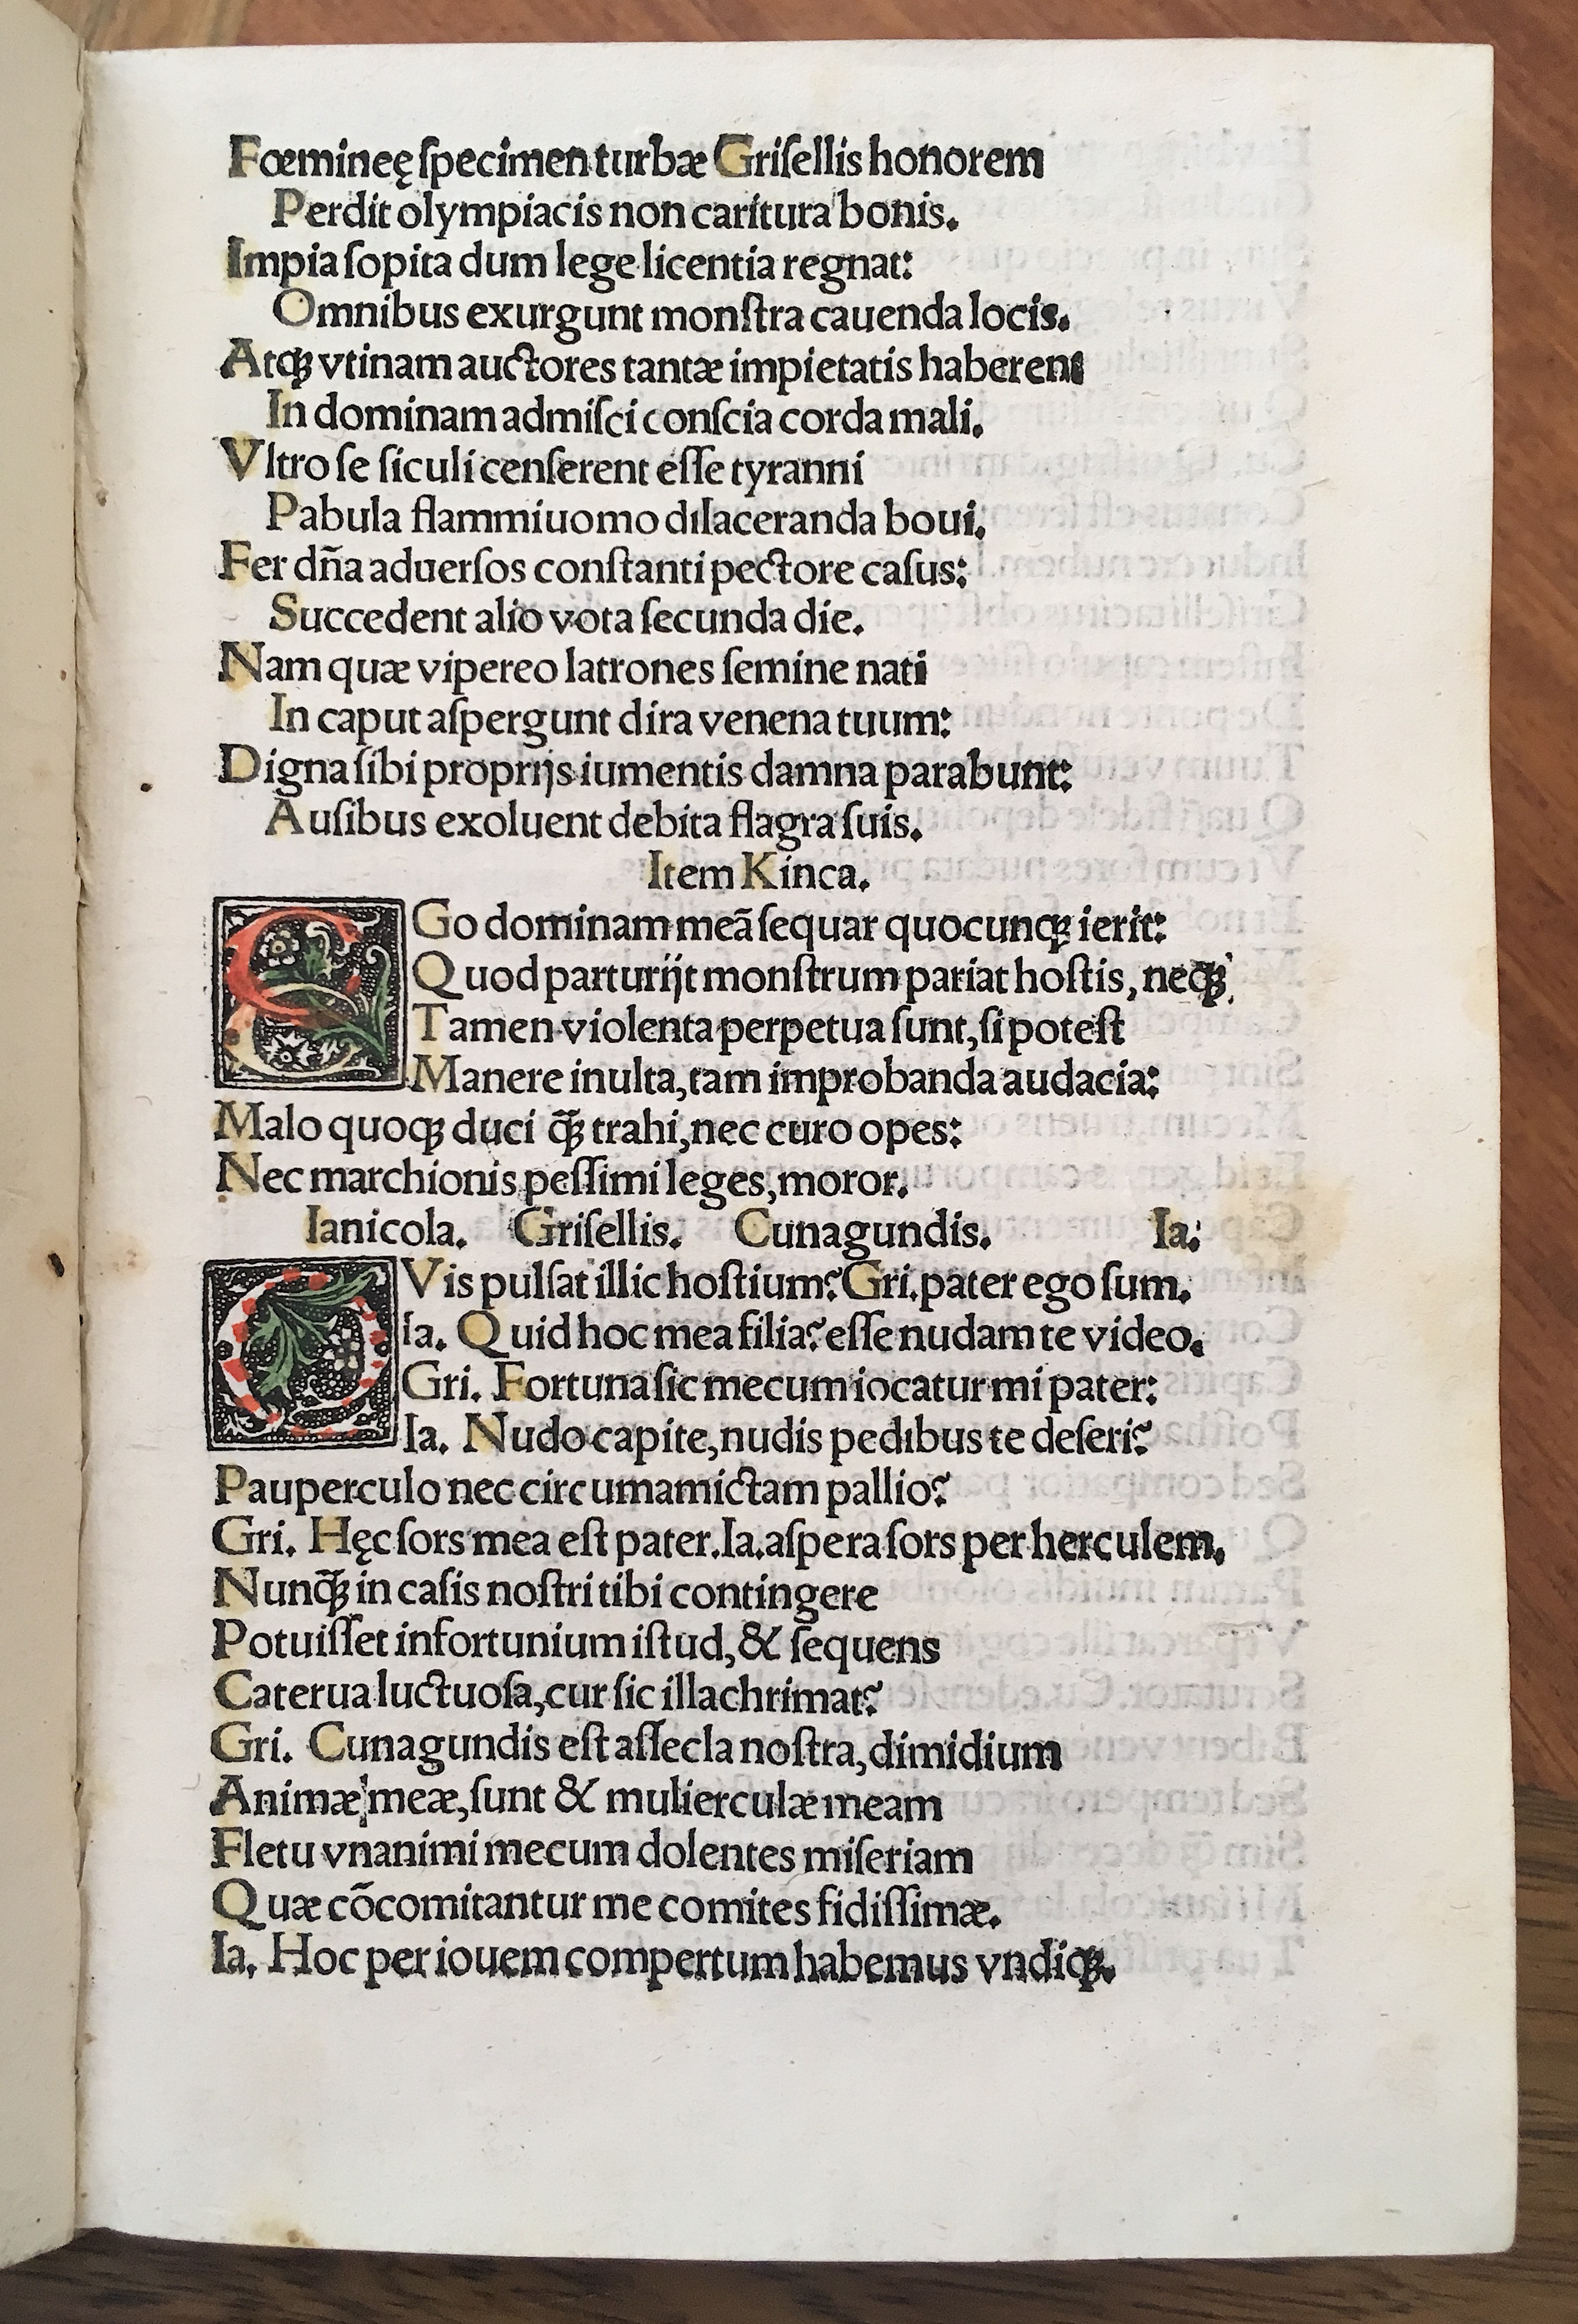 Fœmineę ſpecimen turbæ Griſellis honorem
Perdit olympiacis non caritura bonis.
Impia ſopita dum lege licentia regnat:
Omnibus exurgunt monſtra cauenda locis.
Atqꝫ vtinam auctores tantæ impietatis haberent
In dominam admiſci conſcia corda mali.
Vltro ſe ſiculi cenſerent eſſe tyranni
Pabula flammiuomo dilaceranda boui.
Fer dn̄a aduerſos conſtanti pectore caſus:
Succedent alio vota ſecunda die.
Nam quæ vipereo latrones ſemine nati
In caput aſpergunt dira venena tuum:
Digna ſibi proprijs iumentis damna parabunt:
Auſibus exoluent debita flagra ſuis.
Item Kinca.
EGo dominam meā ſequar quocunqꝫ ierit:
Quod parturijt monſtrum pariat hoſtis, neqꝫ
Tamen violenta perpetua ſunt, ſi poteſt
Manere inulta, tam improbanda audacia:
Malo quoqꝫ duci q̄ꝫ trahi, nec curo opes:
Nec marchionis peſſimi leges, moror.
Ianicola. Griſellis. Cunagundis. Ia:
QVis pulſat illic hoſtium? Gri. pater ego ſum.
Ia. Quid hoc mea filia? eſſe nudam te video.
Gri. Fortuna ſic mecum iocatur mi pater:
Ia. Nudo capite, nudis pedibus te deferi?
Pauperculo nec circumamictam pallio?
Gri. Hęc ſors mea eſt pater. Ia. aſpera ſors per herculem.
Nunq̄ꝫ in caſis noſtri tibi contingere
Potuiſſet infortunium iſtud, & ſequens
Caterua luctuoſa, cur ſic illachrimat?
Gri. Cunagundis eſt aſſecla noſtra, dimidium
Animæ meæ, ſunt & mulierculæ meam
Fletu vnanimi mecum dolentes miſeriam
Quæ cōcomitantur me comites fidiſſimæ.
Ia. Hoc per iouem compertum habemus vndiqꝫ.